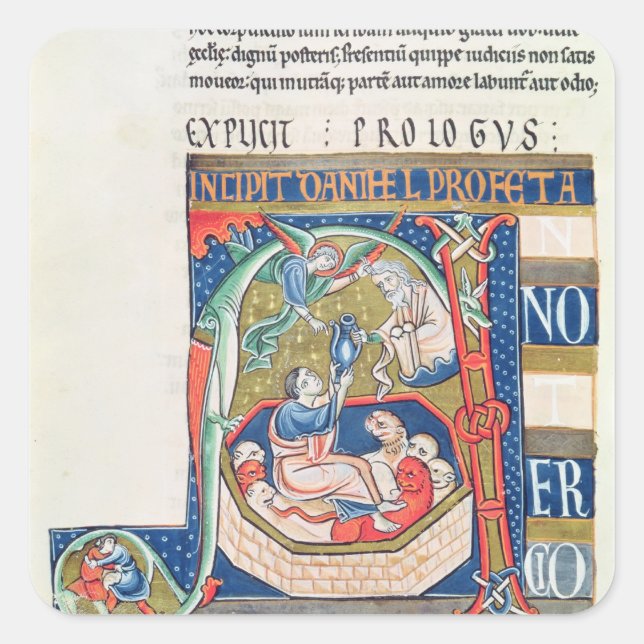 ecclię: dignū posteris; Presentiū quippe iudiciis non satis
moueor: qui in utrāq; partē aut amore labunt᷑ aut odio;
EXPLICIT : PROLOGVS :
INCIPIT DANIHEL PROFETA
N
NO
T
ER
CIO